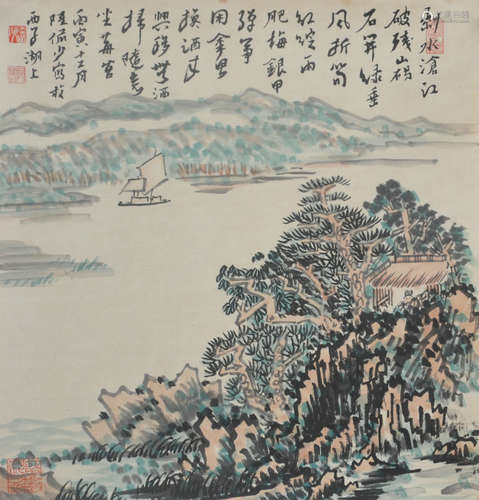 剩水滄江
破殘山碣
石開綠垂
風折筍
紅綻雨
肥梅銀甲
彈箏
用金魚
換酒來
興移無洒
掃隨意
坐莓苔
丙寅十二月
陸儼少寫於
西子湖上